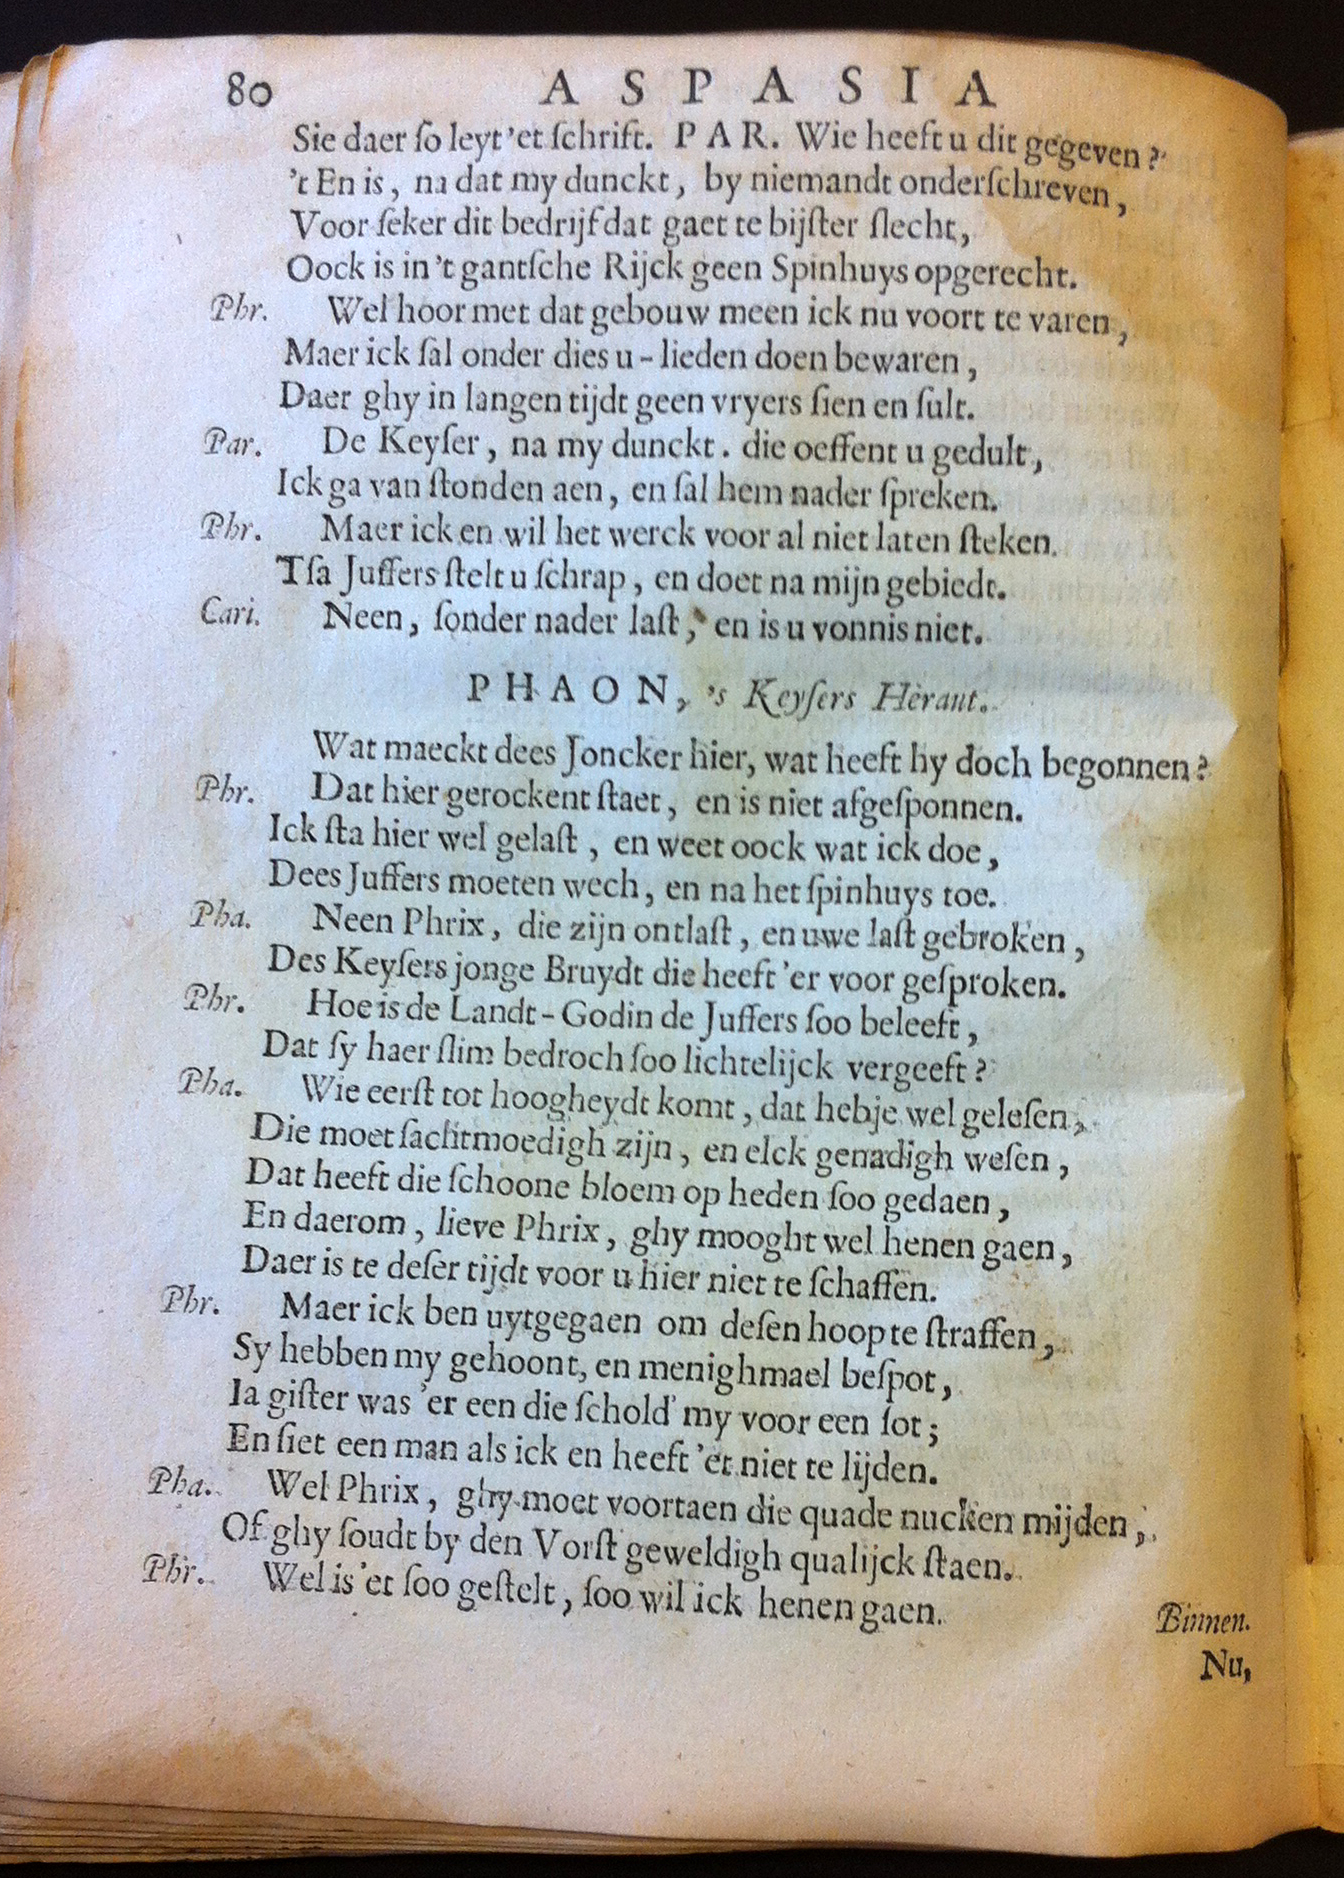 80 ASPASIA
Sie daer ſo leyt 'et ſchrift. PAR. Wie heeft u dit gegeven?
't En is, na dat my dunckt, by niemandt onderſchreven,
Voor ſeker dit bedrijf dat gaet te bijſter ſlecht,
Oock is in 't gantſche Rijck geen Spinhuys opgerecht.
Phr. Wel hoor met dat gebouw meen ick nu voort te varen,
Maer ick ſal onder dies u-lieden doen bewaren,
Daer ghy in langen tijdt geen vryers ſien en ſult.
Par. De Keyſer, na my dunckt. die oeffent u gedult,
Ick ga van ſtonden aen, en ſal hem nader ſpreken.
Phr. Maer ick en wil het werck voor al niet laten ſteken.
Tſa Juffers ſtelt u ſchrap, en doet na mijn gebiedt.
Cari. Neen, ſonder nader laſt, en is u vonnis niet.
PHAON, 's Keyſers Heraut.
Wat maeckt dees Joncker hier, wat heeft hy doch begonnen?
Phr. Dat hier gerockent ſtaet, en is niet afgeſponnen.
Ick ſta hier wel gelaſt, en weet oock wat ick doe,
Dees Juffers moeten wech, en na het ſpinhuys toe.
Pha. Neen Phrix, die zijn ontlaſt, en uwe laſt gebroken,
Des Keyſers jonge Bruydt die heeft 'er voor geſproken.
Phr. Hoe is de Landt-Godin de Juffers ſoo beleeft,
Dat ſy haer ſlim bedroch ſoo lichtelijck vergeeft?
Pha. Wie eerſt tot hoogheydt komt, dat hebje wel geleſen,
Die moet ſachtmoedigh zijn, en elck genadigh weſen,
Dat heeft die ſchoone bloem op heden ſoo gedaen,
En daerom, lieve Phrix, ghy mooght wel henen gaen,
Daer is te deſer tijdt voor u hier niet te ſchaffen.
Phr. Maer ick ben uytgegaen om deſen hoop te ſtraffen,
Sy hebben my gehoont, en menighmael beſpot,
Ia giſter was 'er een die ſchold' my voor een ſot;
En ſiet een man als ick en heeft 'et niet te lijden.
Pha. Wel Phrix, ghy moet voortaen die quade nucken mijden,
Of ghy ſoudt by den Vorſt geweldigh qualijck ſtaen.
Phr. Wel is 'et ſoo geſtelt, ſoo wil ick henen gaen.
Binnen.
Nu,